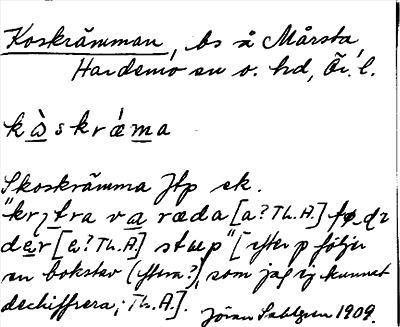 Koskrämman, bs å Mårsta
Hardemo sn o. hd, Ör. l.
kὰskrǽma
Skoskrämma Jfp ek.
"krytra va ræda [a? Th. A.] fø
der [e? Th. A.] stup" [efter p följer
en bokstav (eftern?), som jag ej kunnat
dechiffrera; Th. A.]. Jöran Sahlgren 1909.